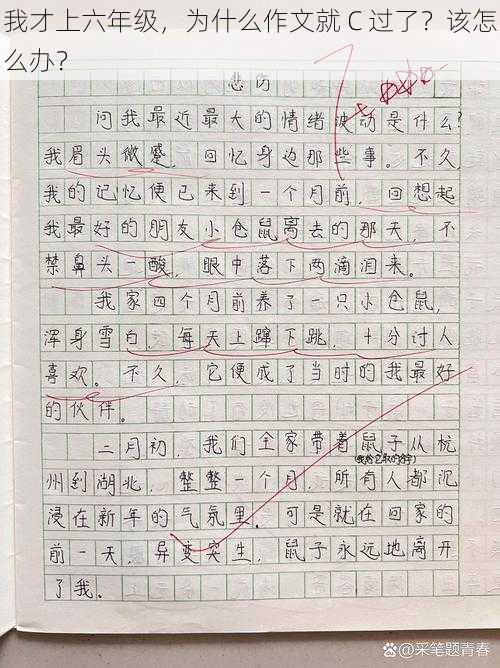 我才上六年级，为什么作文就 C 过了？该怎
么办？
悲伤
问我最近最大的情绪波动是什么？
我眉头微蹙，回忆身边那些事。不久，
我的记忆便已来到一个月前，回想起
我最好的朋友小仓鼠离去的那天，不
禁鼻头一酸，眼中落下两滴泪来。
我家四个月前养了一只小仓鼠，
浑身雪白，每天上蹿下跳，十分讨人
喜欢。不久，它便成了当时的我最好
的伙伴。
二月初，我们全家带着鼠子从杭
(我给它取的名字)
州到湖北，整整一个月，所有人都沉
浸在新年的气氛里。可是就在回家的
前一天，异变突生，鼠子永远地离开
了我。
@采笔题青春